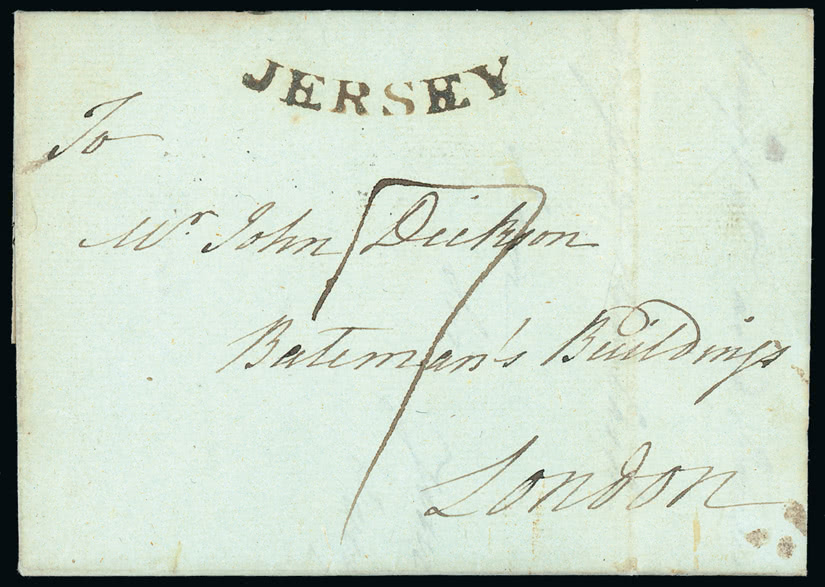 JERSEY
To
Mr John Dickson
7
Bateman's Buildings
London